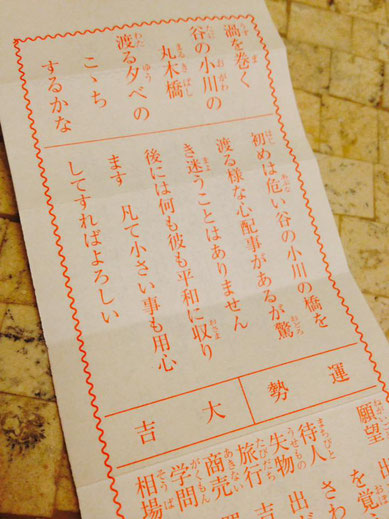 渦を巻く
谷の小川の
丸木橋
渡る夕べの
こゝち
するかな
初めは危い谷の小川の橋を
渡る様な心配事があるが驚
き迷うことはありません
後には何も彼も平和に収り
ます 凡て小さい事も用心
してすればよろしい
運勢
大吉
願望
待人
失物 出
旅行
商売
学問
相場